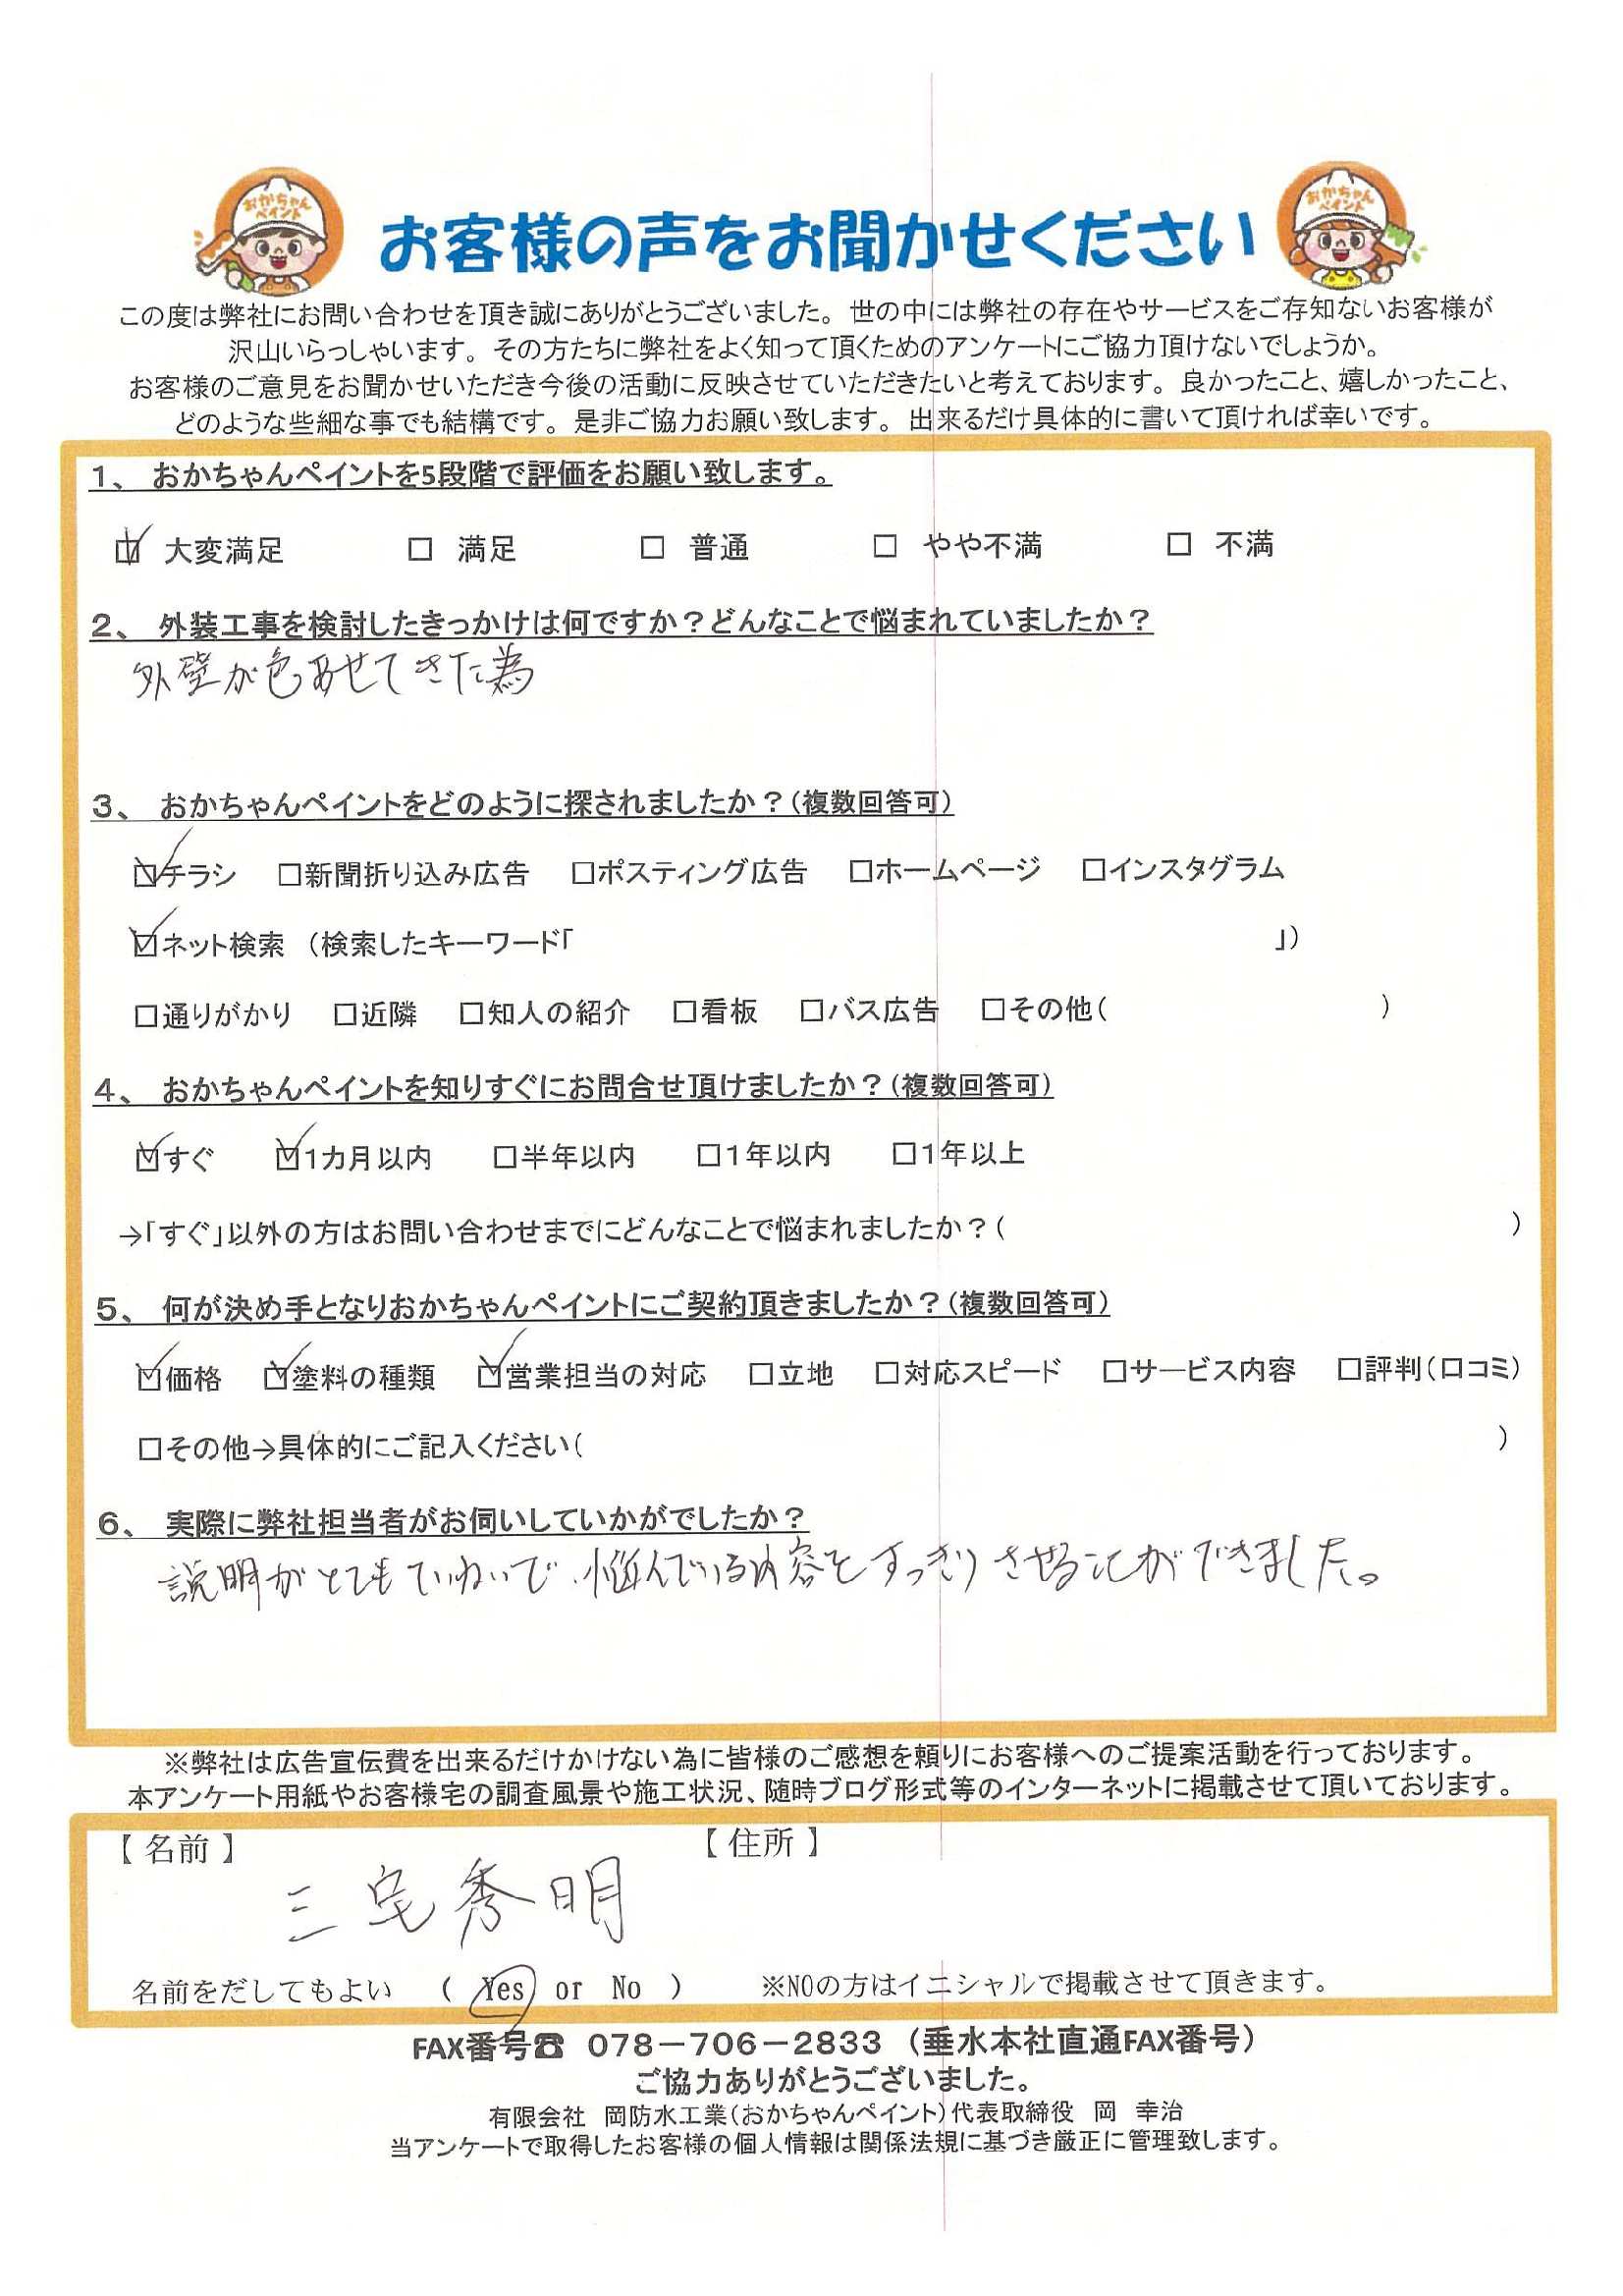 おかちゃん
ペイント
お客様の声をお聞かせください
おかちゃん
ペイント
この度は弊社にお問い合わせを頂き誠にありがとうございました。世の中には弊社の存在やサービスをご存知ないお客様が
沢山いらっしゃいます。その方たちに弊社をよく知って頂くためのアンケートにご協力頂けないでしょうか。
お客様のご意見をお聞かせいただき今後の活動に反映させていただきたいと考えております。良かったこと、嬉しかったこと、
どのような些細な事でも結構です。是非ご協力お願い致します。出来るだけ具体的に書いて頂ければ幸いです。
１、 おかちゃんペイントを5段階で評価をお願い致します。
☑ 大変満足 □ 満足 □ 普通 □ やや不満 □ 不満
２、 外装工事を検討したきっかけは何ですか？どんなことで悩まれていましたか？
外壁が色あせてきた為
３、 おかちゃんペイントをどのように探されましたか？（複数回答可）
☑チラシ □新聞折り込み広告 □ポスティング広告 □ホームページ □インスタグラム
☑ネット検索 （検索したキーワード「 」）
□通りがかり □近隣 □知人の紹介 □看板 □バス広告 □その他（ ）
４、 おかちゃんペイントを知りすぐにお問合せ頂けましたか？（複数回答可）
☑すぐ ☑1カ月以内 □半年以内 □1年以内 □1年以上
→「すぐ」以外の方はお問い合わせまでにどんなことで悩まれましたか？（ ）
５、 何が決め手となりおかちゃんペイントにご契約頂きましたか？（複数回答可）
☑価格 ☑塗料の種類 ☑営業担当の対応 □立地 □対応スピード □サービス内容 □評判（口コミ）
□その他→具体的にご記入ください（ ）
６、 実際に弊社担当者がお伺いしていかがでしたか？
説明がとてもていねいで、悩んでいる内容をすっきりさせることができました。
※弊社は広告宣伝費を出来るだけかけない為に皆様のご感想を頼りにお客様へのご提案活動を行っております。
本アンケート用紙やお客様宅の調査風景や施工状況、随時ブログ形式等のインターネットに掲載させて頂いております。
【 名前 】 【 住所 】
三宅秀明
名前をだしてもよい （ Yes or No ） ※NOの方はイニシャルで掲載させて頂きます。
FAX番号☎ 078－706－2833 （垂水本社直通FAX番号）
ご協力ありがとうございました。
有限会社 岡防水工業（おかちゃんペイント）代表取締役 岡 幸治
当アンケートで取得したお客様の個人情報は関係法規に基づき厳正に管理致します。